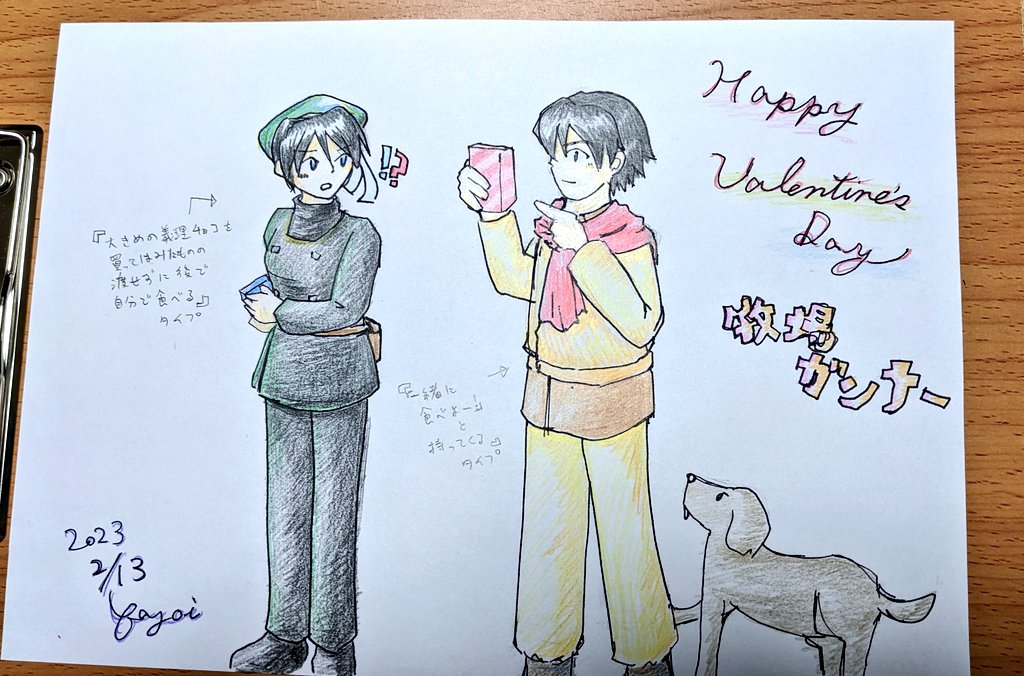 Happy
Valentine's
Day
牧場
ガンナー
!?
『大きめの義理チョコを
買ってはみたものの
渡せずに後で
自分で食べる』
タイプ
『一緒に
食べよー!』
と
持ってくる』
タイプ
2023
2/13
Yayoi